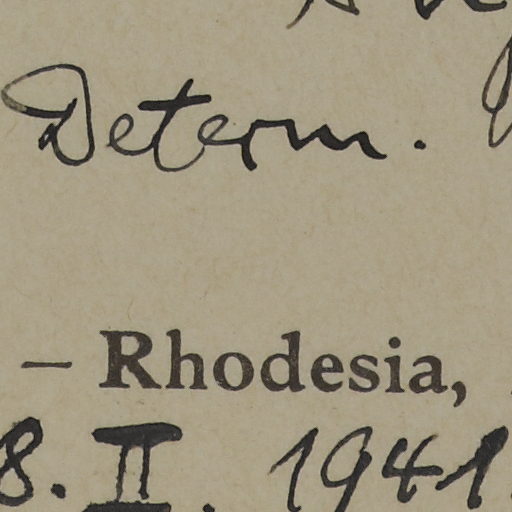 Determ.
– Rhodesia,
8. II. 1941